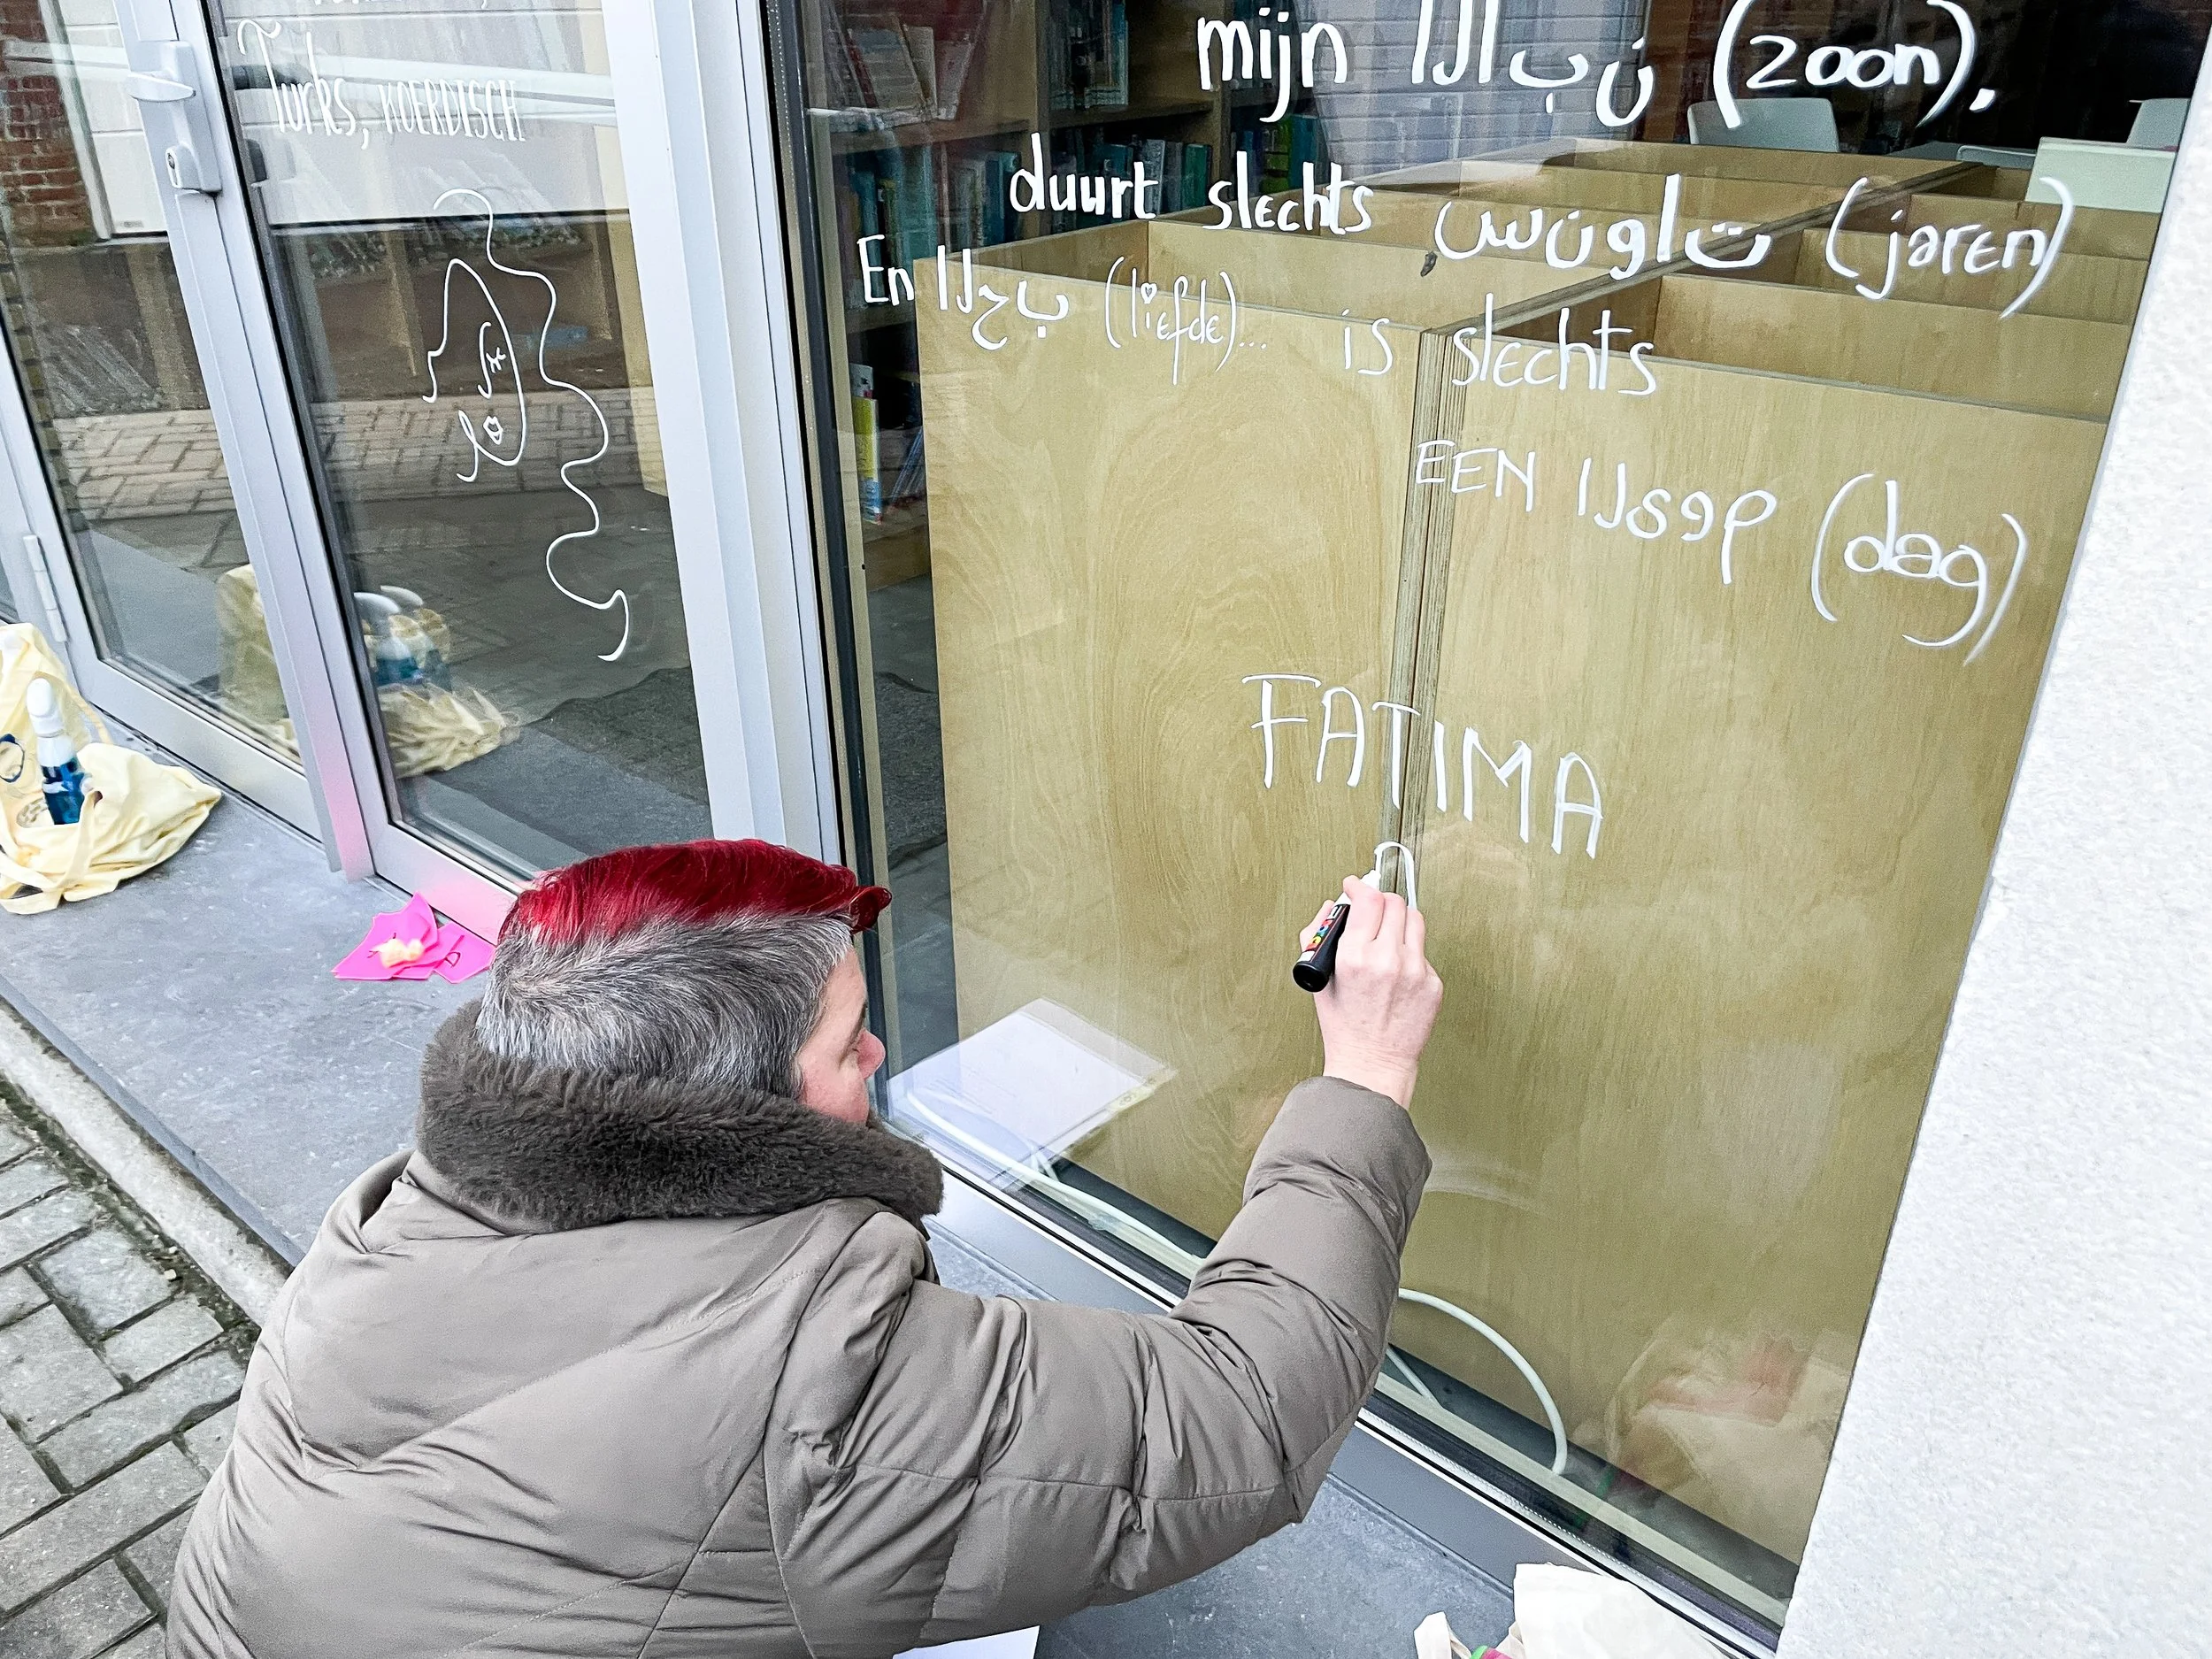 Turks, KOERDISCH
mijn الابن (zoon).
duurt slechts سنوات (jaren)
En الحب (liefde)... is slechts
EEN اليوم (dag)
FATIMA